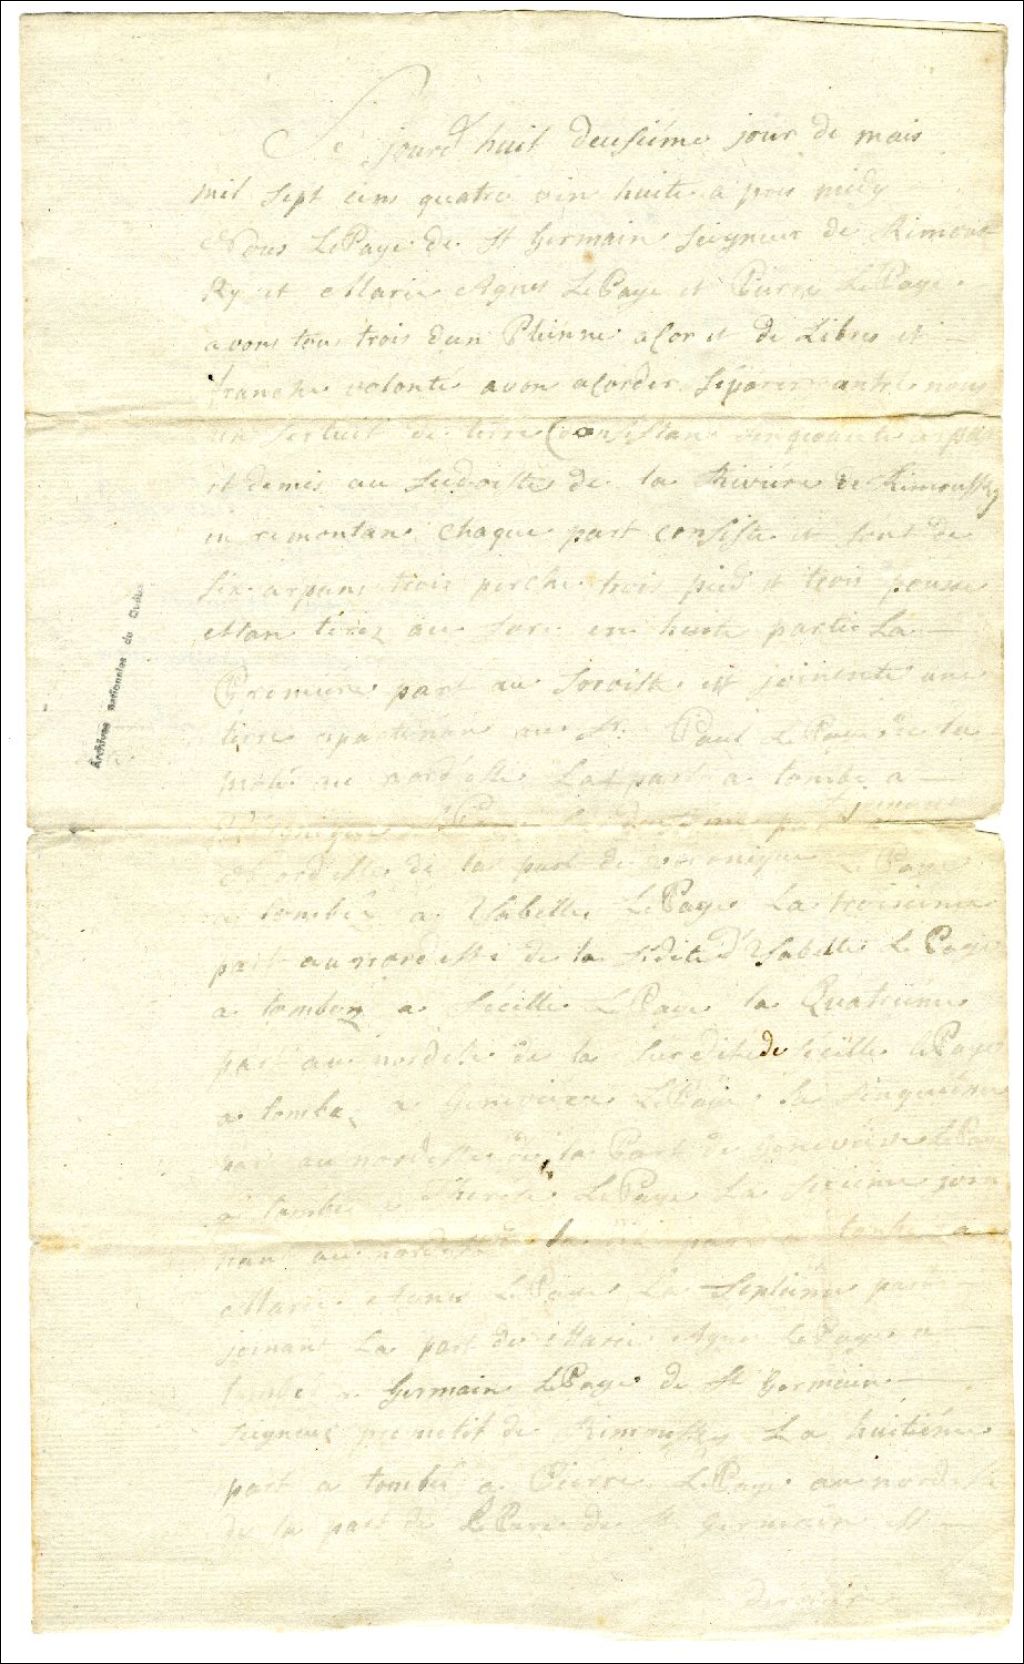 Ce jourd huit deusiéme jour de mais
mil sept cens quatre vin huite a pres midy
Nous LePage de St Germain Seigneur de Rimous
Ky et Marie Agnes LePage et Pierre LePage
avons tous trois dun Plinne acor et de Libres et
franche volonté avon acorder séparer antre nous
un de terre Consistan cinquante arpan
et demis au Sudoiste de la Riviére de Rimousky
en remontan chaque part consiste et sont de
six arpans trois perche trois pied et trois pousse
etan tirez au sore en huite partie La
Premiére part au Soroiste est joinente une
terre apartenan au Sr. Paul LePage de la
molé au nordeste La part a tombé a
LePage la deusiéme part joinant
Nordeste de la part de veronique LePage
a tombéz a Isabelle LePage La troisiéme
part aunordeste de la sidite d'Isabelle LePage
a tombez a Sécille LePage la Quatriéme
part au nordeste de la surdite de Sécille LePage
a tombez a Genevieve LePage la Sinquiéme
part au nordeste de la Part de Genevieve LePage
a tombé a Therese LePage La Sixiéme join
nan au nordeste a tombé a
Marie Agnes LePage La Septiéme part
joinant La part de Marie Agnes LePage a
tombé a Germain LePage de St Germain
Seigneur primitif de Rimousky La huitiéme
part a tombé a Pierre LePage au nordeste
de la part de LePage de St Germain et
derniére
Archives nationales du Québec